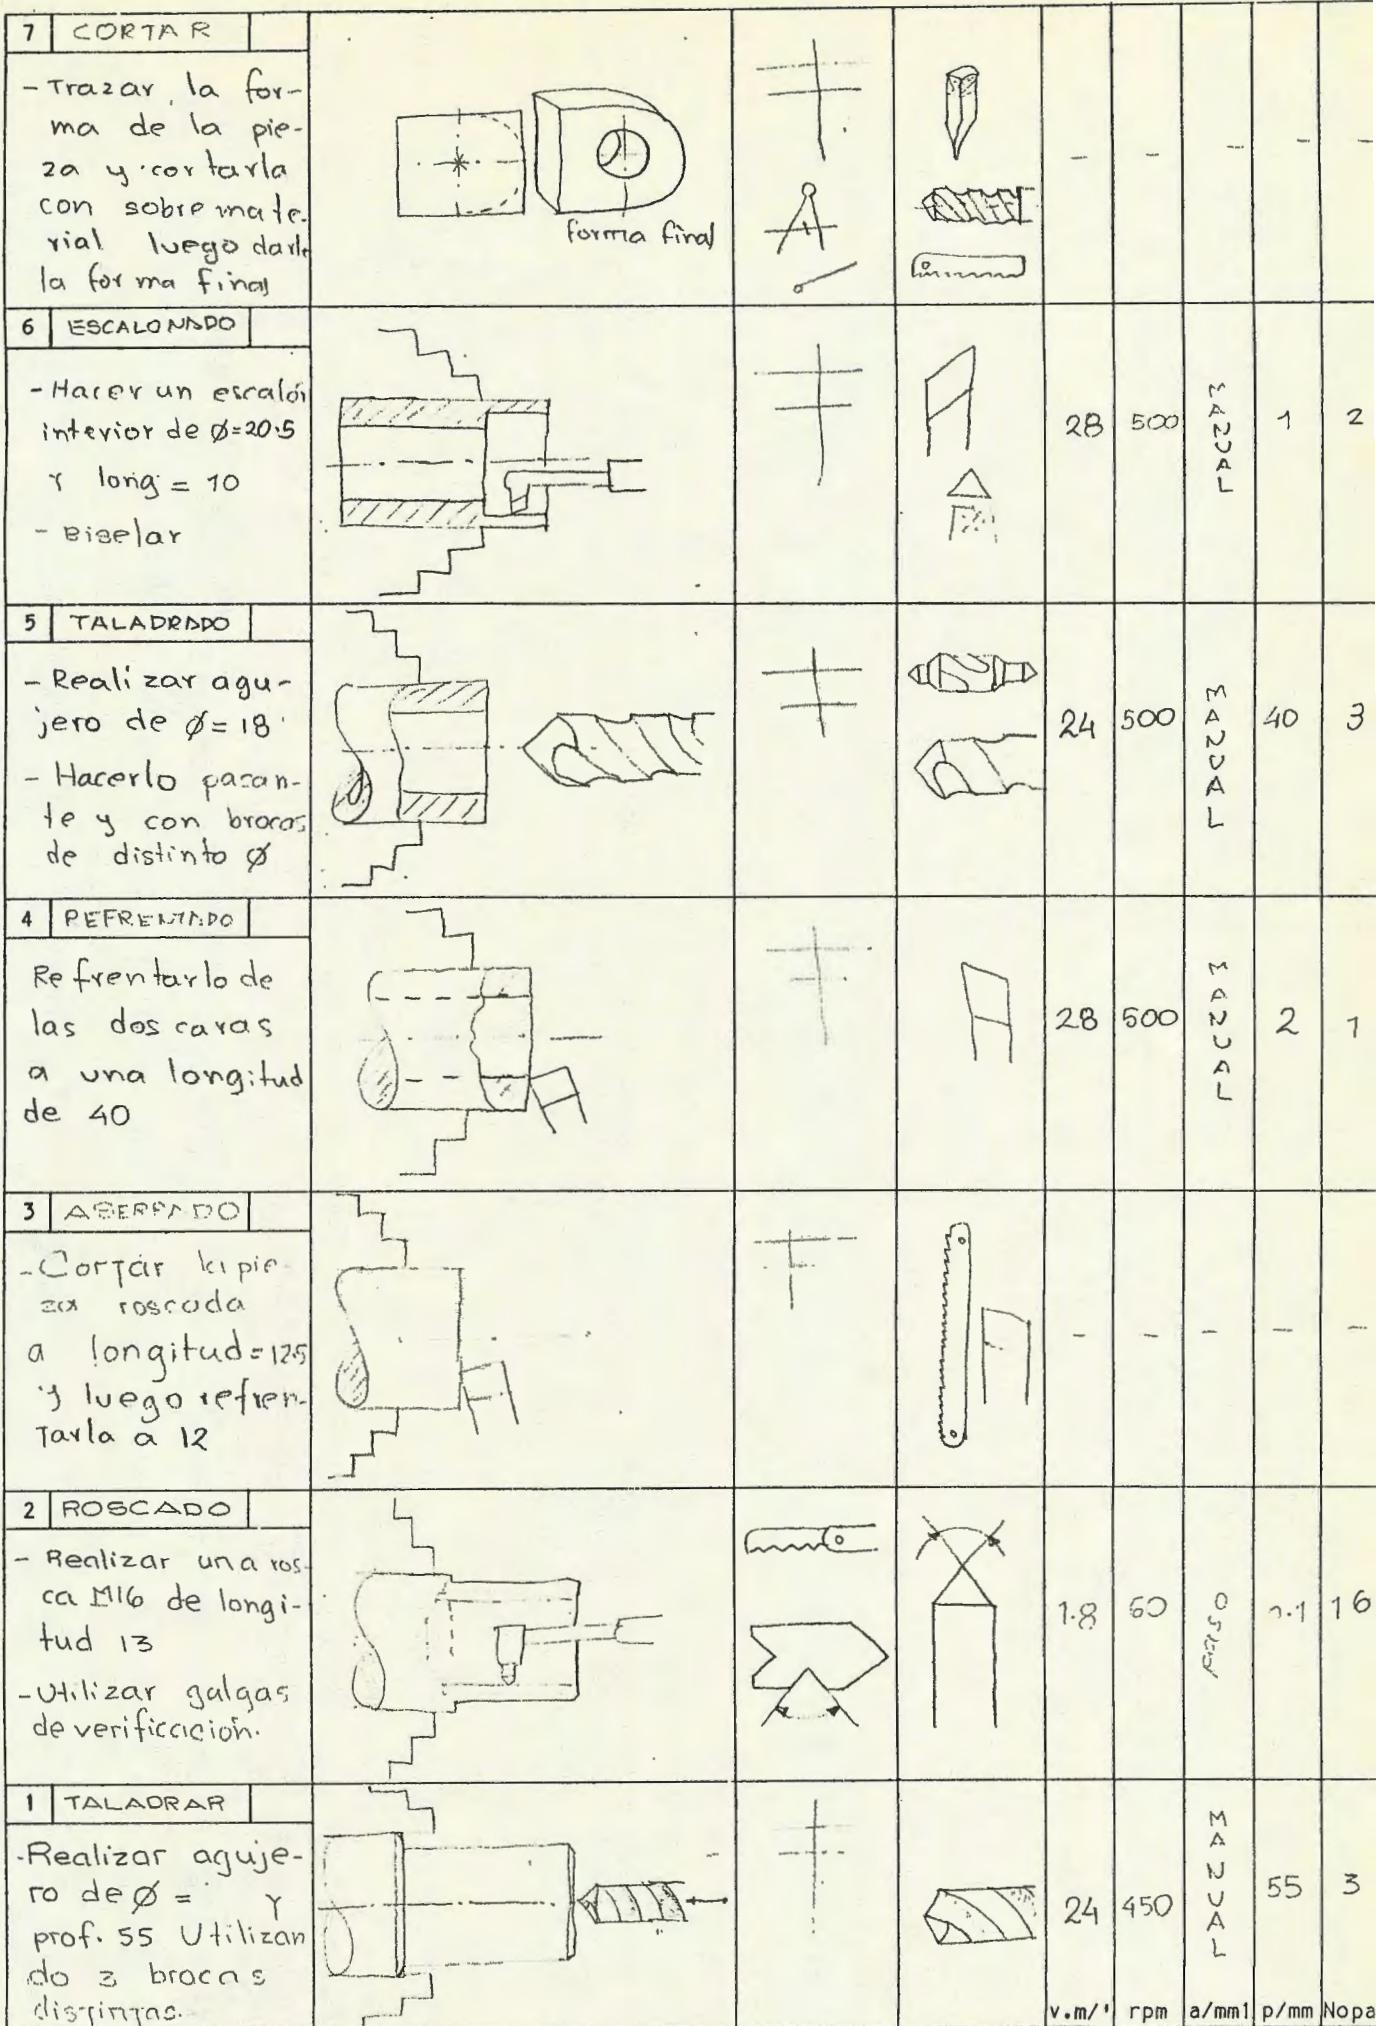 7 CORTAR
- Trazar, la for-
ma de la pie-
za y cortarla
con sobre mate-
rial luego darle
la forma final
forma final
- - - - -
6 ESCALONADO
- Hacer un escalón
interior de Ø=20.5
Y long = 10
- Biselar
28 500 MANUAL 1 2
5 TALADRADO
- Realizar agu-
jero de Ø=18
- Hacerlo pasan-
te y con brocas
de distinto Ø
24 500 MANUAL 40 3
4 REFRENTADO
Refrentarlo de
las dos caras
a una longitud
de 40
28 500 MANUAL 2 1
3 ASERRADO
- Cortar la pie-
za roscada
a longitud=12.5
y luego refren-
tarla a 12
- - - - -
2 ROSCADO
- Realizar una ros-
ca M16 de longi-
tud 13
- Utilizar galgas
de verificación.
1.8 60 16
1 TALADRAR
- Realizar aguje-
ro de Ø = Y
prof. 55 Utilizan
do 3 brocas
distintas.
24 450 MANUAL 55 3
v.m/' rpm a/mm1 p/mm Nopa